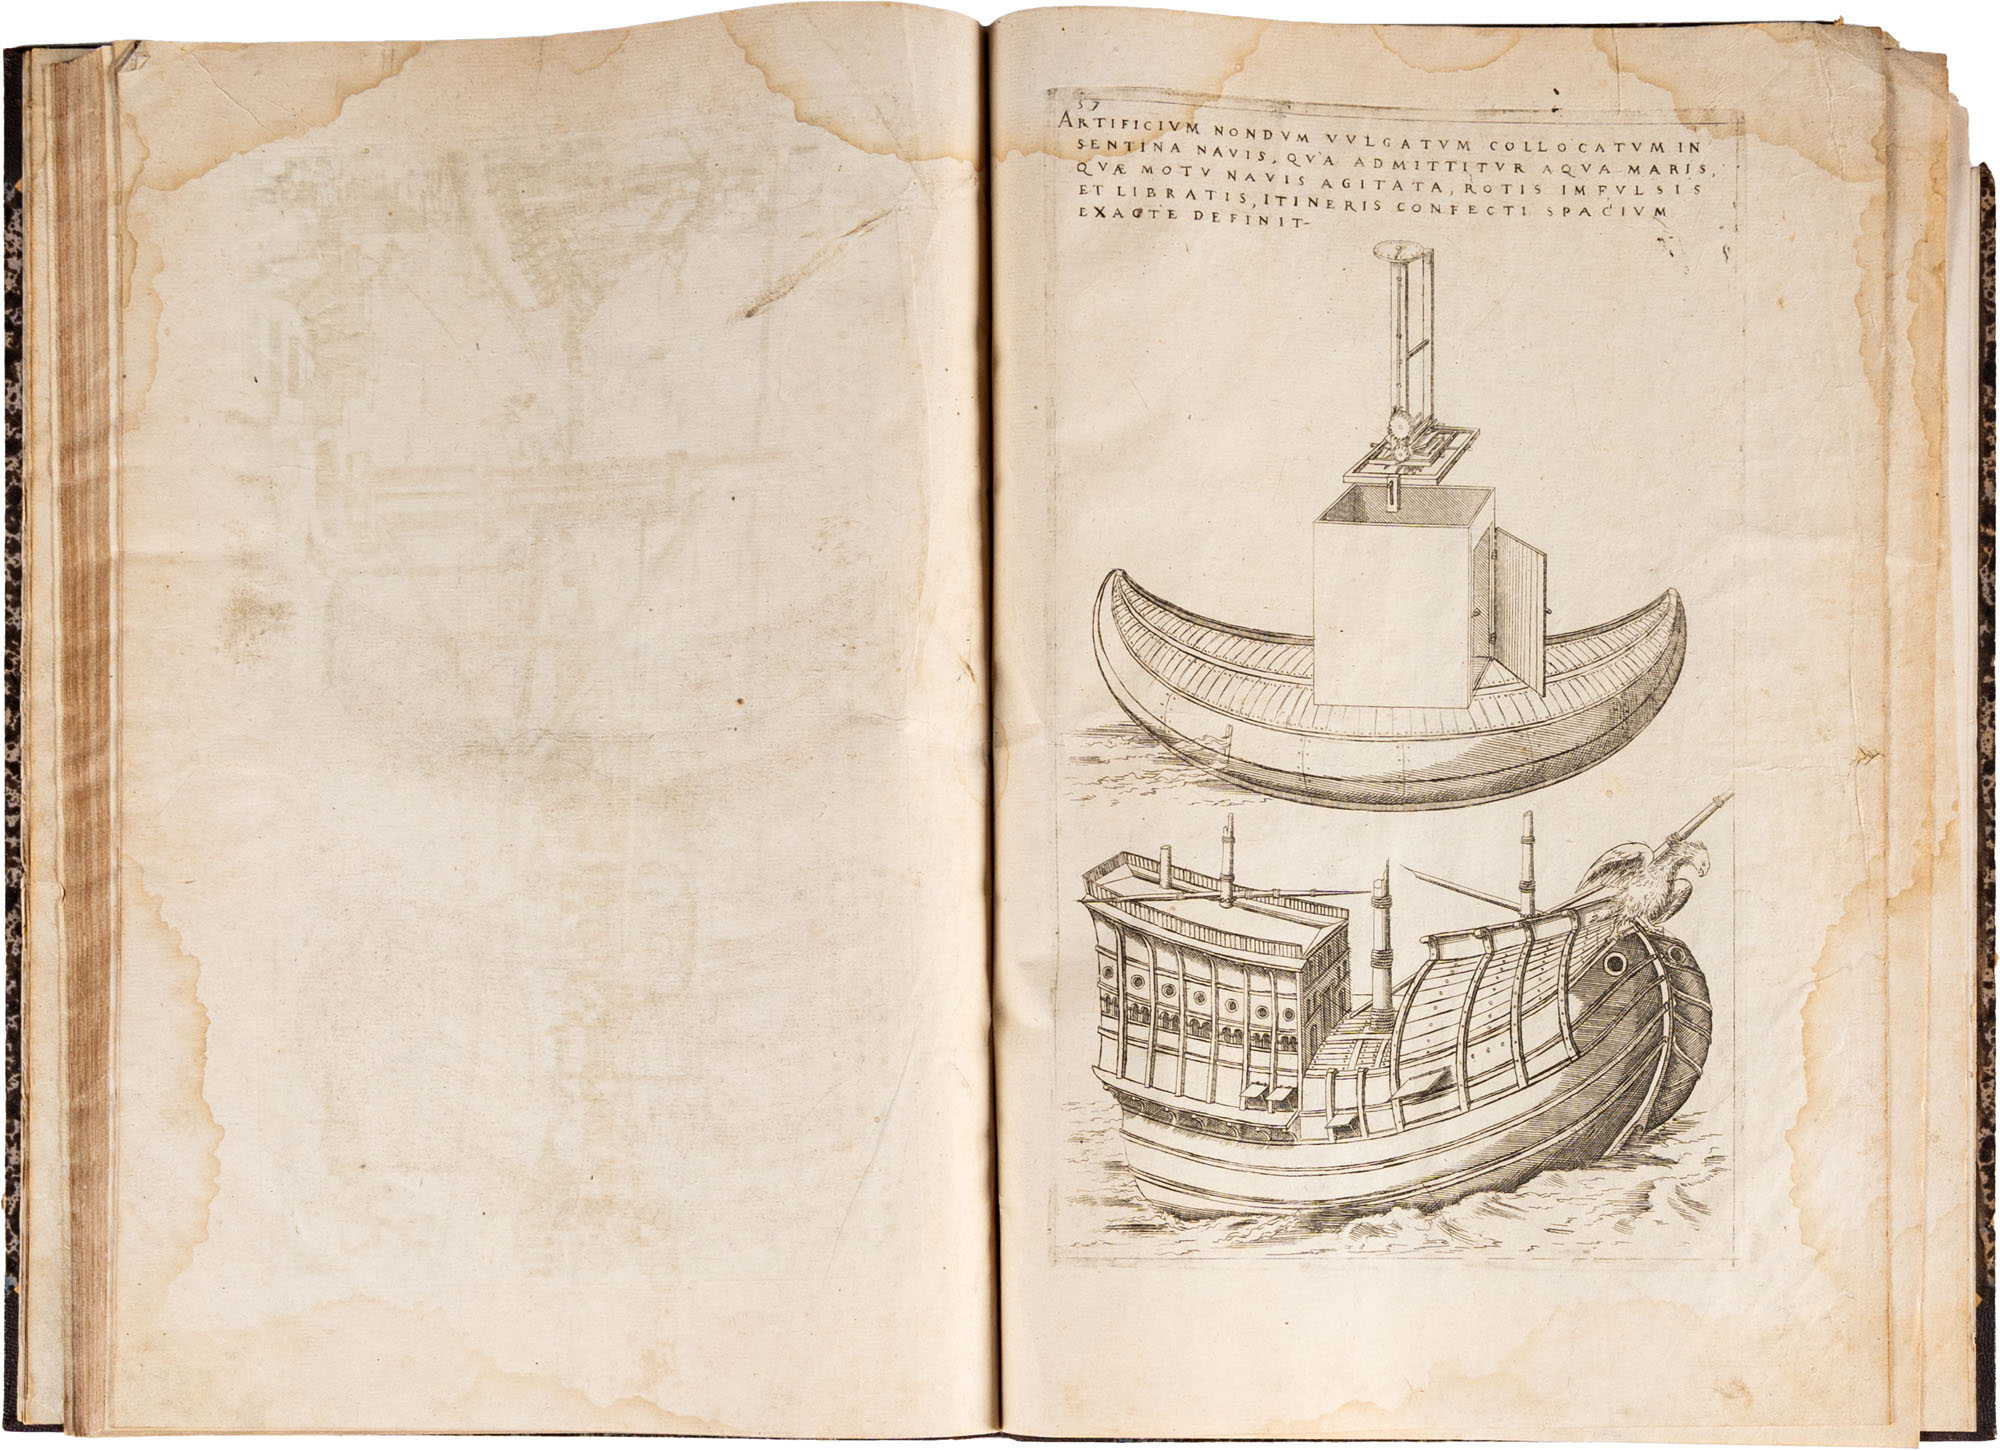 57
ARTIFICIVM NONDVM VVLGATVM COLLOCATVM IN
SENTINA NAVIS, QVA ADMITTITVR AQVA MARIS,
QVÆ MOTV NAVIS AGITATA, ROTIS IMPVLSIS
ET LIBRATIS, ITINERIS CONFECTI SPACIVM
EXACTE DEFINIT-